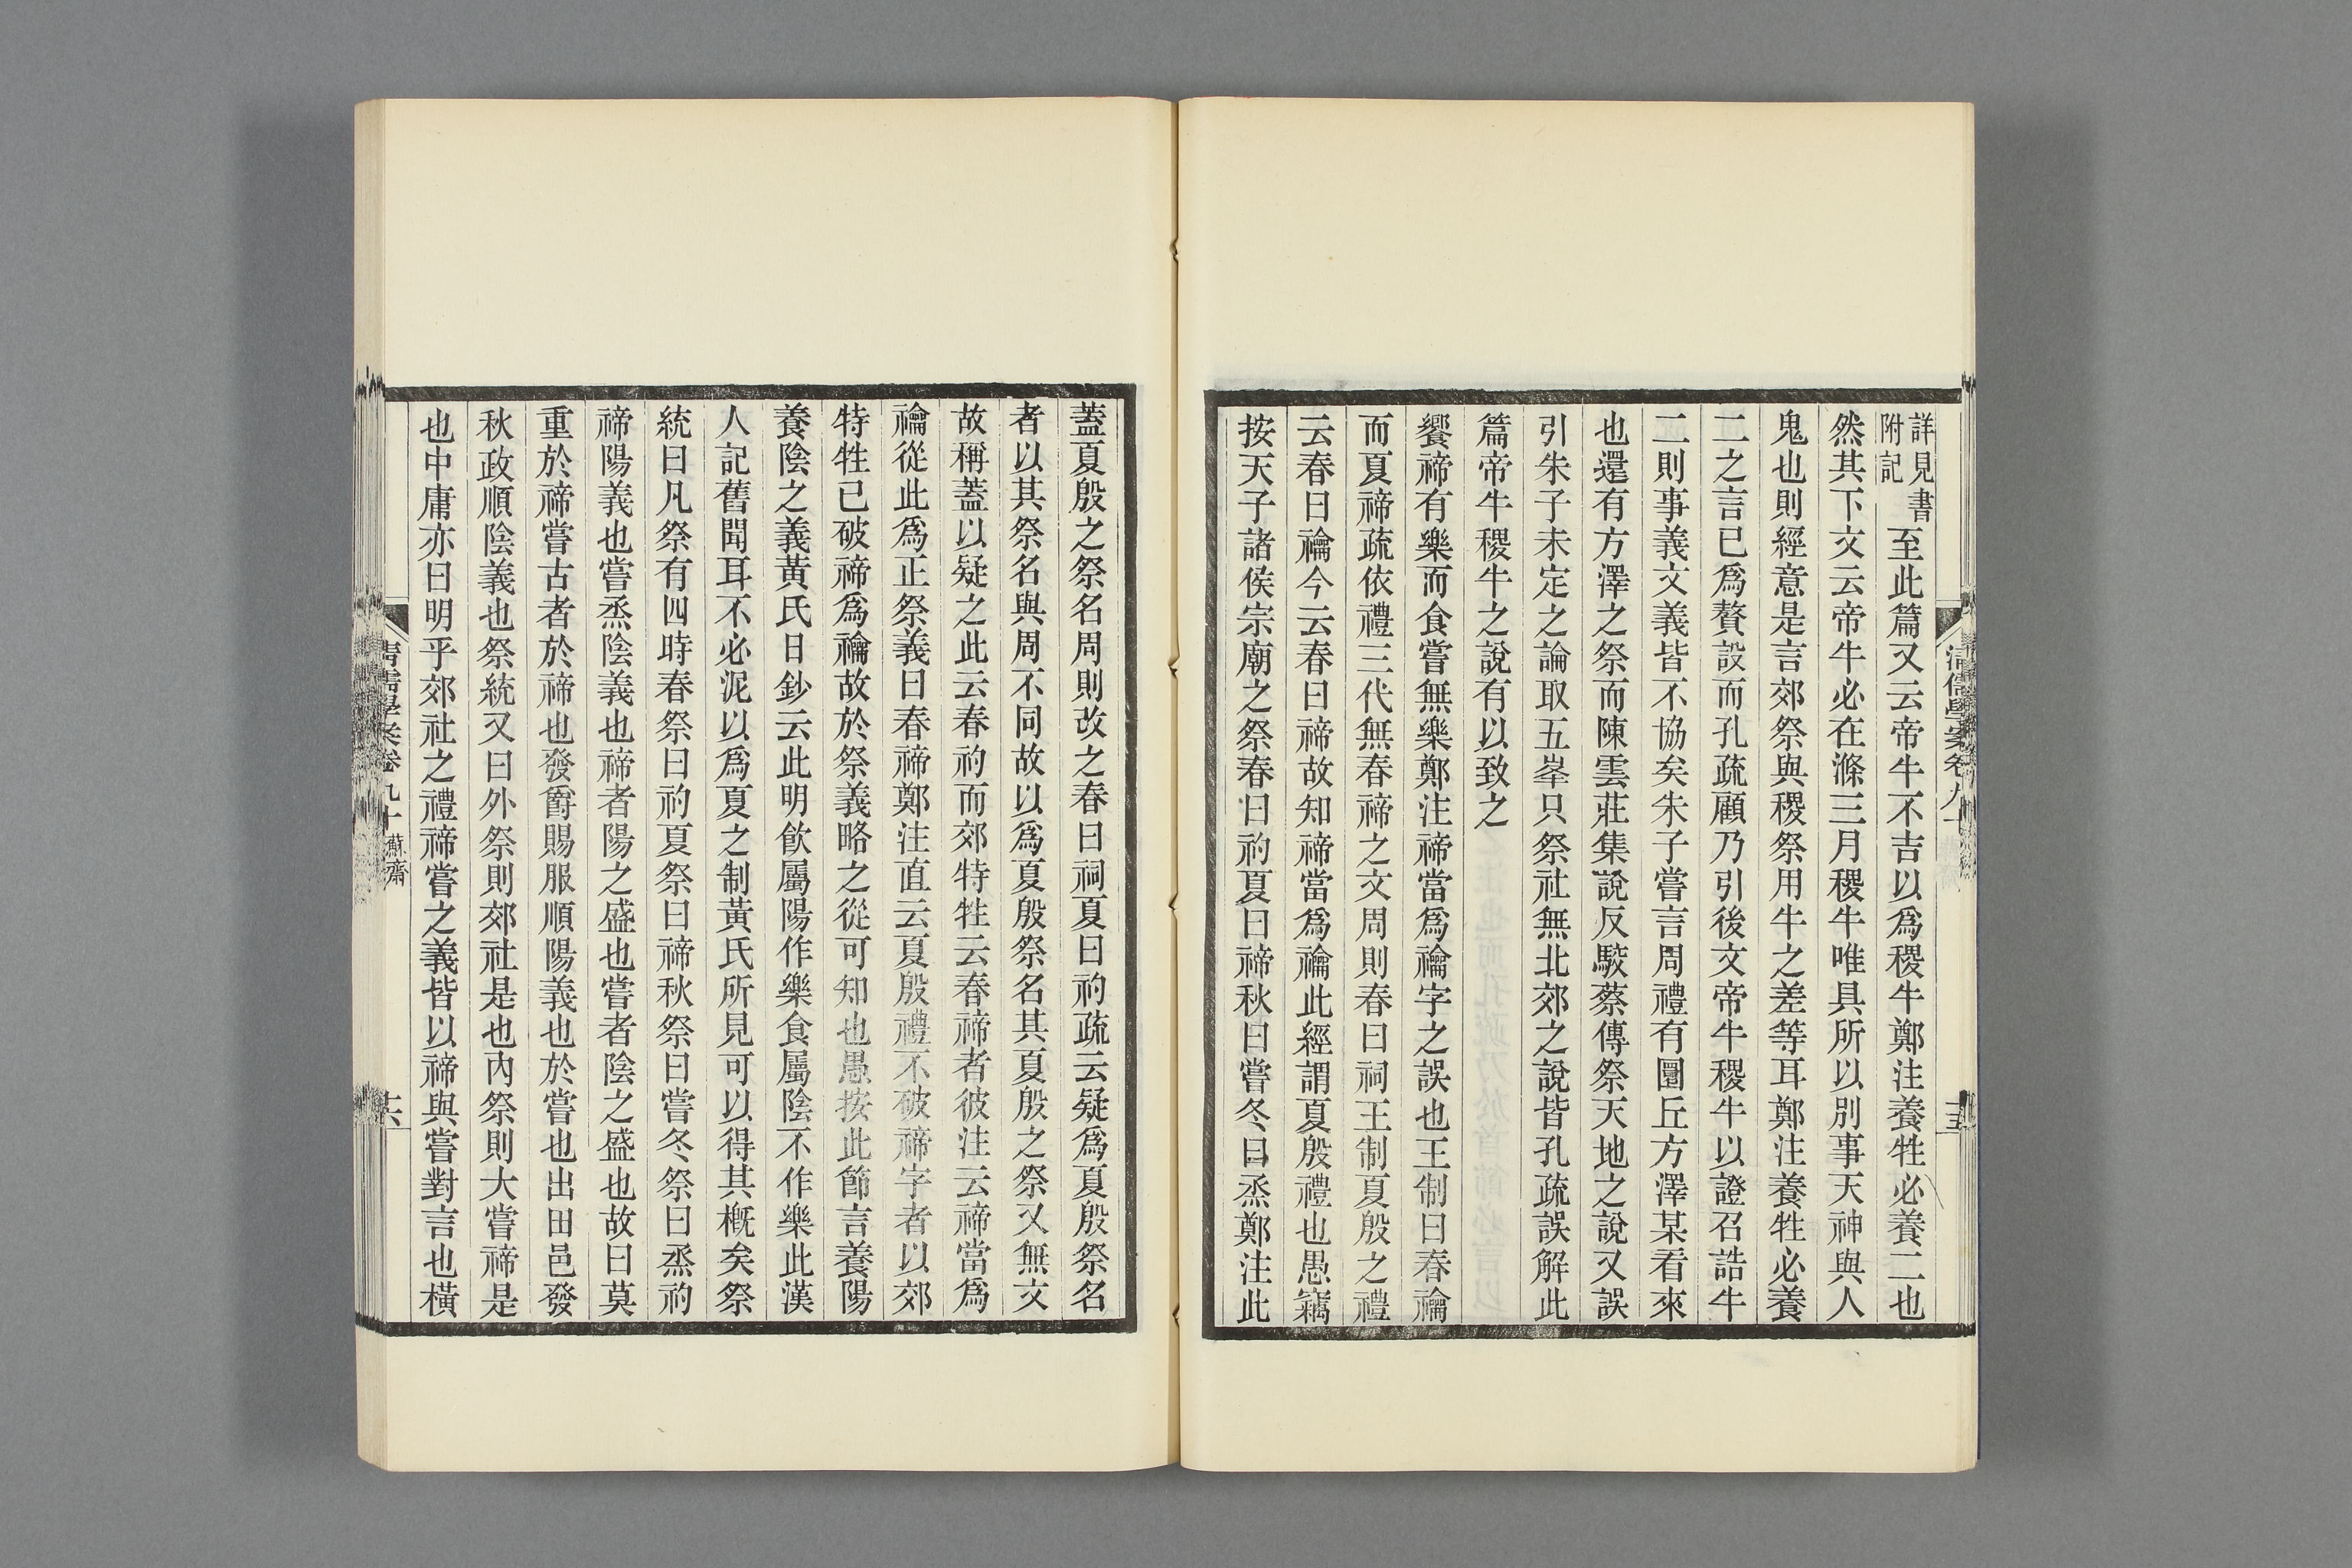 詳見書附記至此篇又云帝牛不吉以爲稷牛鄭注養牲必養二也
然其下文云帝牛必在滌三月稷牛唯具所以別事天神與人
鬼也則經意是言郊祭與稷祭用牛之差等耳鄭注養牲必養
二之言已爲贅設而孔疏顧乃引後文帝牛稷牛以證召誥牛
二則事義文義皆不協矣朱子嘗言周禮有圜丘方澤某看來
也還有方澤之祭而陳雲莊集說反駁蔡傳祭天地之說又誤
引朱子未定之論取五峯只祭社無北郊之說皆孔疏誤解此
篇帝牛稷牛之說有以致之
饗禘有樂而食嘗無樂鄭注禘當爲禴字之誤也王制曰春禴
而夏禘疏依禮三代無春禘之文周則春曰祠王制夏殷之禮
云春曰禴今云春曰禘故知禘當爲禴此經謂夏殷禮也愚竊
按天子諸侯宗廟之祭春曰礿夏曰禘秋曰嘗冬曰烝鄭注此
蓋夏殷之祭名周則改之春曰祠夏曰礿疏云疑爲夏殷祭名
者以其祭名與周不同故以爲夏殷祭名其夏殷之祭又無文
故稱蓋以疑之此云春礿而郊特牲云春禘者彼注云禘當爲
禴從此爲正祭義曰春禘鄭注直云夏殷禮不破禘字者以郊
特牲已破禘爲禴故於祭義略之從可知也愚按此節言養陽
養陰之義黃氏日鈔云此明飮屬陽作樂食屬陰不作樂此漢
人記舊聞耳不必泥以爲夏之制黃氏所見可以得其槪矣祭
統曰凡祭有四時春祭曰礿夏祭曰禘秋祭曰嘗冬祭曰烝礿
禘陽義也嘗烝陰義也禘者陽之盛也嘗者陰之盛也故曰莫
重於禘嘗古者於禘也發爵賜服順陽義也於嘗也出田邑發
秋政順陰義也祭統又曰外祭則郊社是也內祭則大嘗禘是
也中庸亦曰明乎郊社之禮禘嘗之義皆以禘與嘗對言也橫
清儒學案卷九十
蘇齋
十六